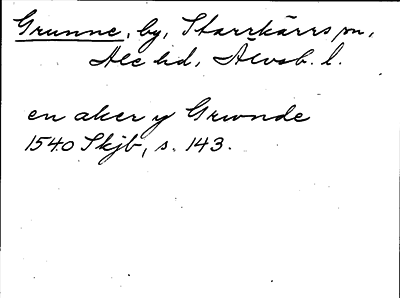 Grunne, by, Starrkärrs sn,
Ale hd, Älvsb. l.
en aker y Grwnde
1540 Skjb, s. 143.